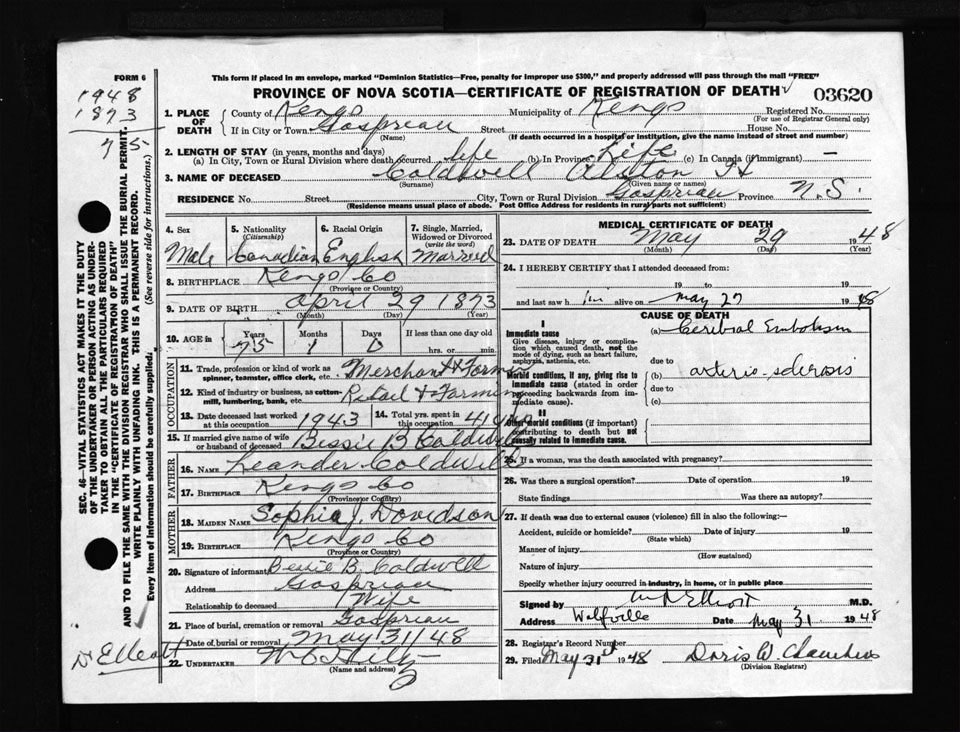 FORM 6
This form if placed in an envelope, marked "Dominion Statistics—Free, penalty for improper use $300," and properly addressed will pass through the mail "FREE"
PROVINCE OF NOVA SCOTIA—CERTIFICATE OF REGISTRATION OF DEATH
03620
1948
1873
75
1. PLACE OF DEATH County of Kings Municipality of Kings Registered No.
(For use of Registrar General only)
If in City or Town Gaspreau Street House No.
(Name) (If death occurred in a hospital or institution, give the name instead of street and number)
2. LENGTH OF STAY (in years, months and days)
(a) In City, Town or Rural Division where death occurred life (b) In Province Life (c) In Canada (if immigrant) —
3. NAME OF DECEASED Coldwell Alston
(Surname) (Given name or names)
RESIDENCE No. Street City, Town or Rural Division Gaspreau Province N.S.
(Residence means usual place of abode. Post Office Address for residents in rural parts not sufficient)
4. Sex 5. Nationality (Citizenship) 6. Racial Origin 7. Single, Married, Widowed or Divorced (write the word)
Male Canadian English Married
8. BIRTHPLACE Kings Co
(Province or Country)
9. DATE OF BIRTH April 29 1873
(Month) (Day) (Year)
10. AGE in Years Months Days If less than one day old
75 1 0 hrs. or min.
OCCUPATION
11. Trade, profession or kind of work as spinner, teamster, office clerk, etc. Merchant & Farmer
12. Kind of industry or business, as cotton-mill, lumbering, bank, etc. Retail & Farming
13. Date deceased last worked at this occupation 1943 14. Total yrs. spent in 41 yrs
15. If married give name of wife or husband of deceased Bessie B Coldwell
FATHER
16. NAME Leander Coldwell
17. BIRTHPLACE Kings Co
(Province or Country)
MOTHER
18. MAIDEN NAME Sophia J. Davidson
19. BIRTHPLACE Kings Co
(Province or Country)
20. Signature of informant Bessie B. Coldwell
Address Gaspreau
Relationship to deceased Wife
21. Place of burial, cremation or removal Gaspreau
Date of burial or removal May 31/48
22. UNDERTAKER
(Name and address)
Dr Elliott
MEDICAL CERTIFICATE OF DEATH
23. DATE OF DEATH May 29 1948
(Month) (Day) (Year)
24. I HEREBY CERTIFY that I attended deceased from:
19 to 19
and last saw h im alive on May 27 1948
CAUSE OF DEATH
I
Immediate cause
Give disease, injury or complication which caused death, not the mode of dying, such as heart failure, asphyxia, asthenia, etc.
(a) Cerebral Embolism
due to
Morbid conditions, if any, giving rise to immediate cause (stated in order proceeding backwards from immediate cause).
(b) arterio-sclerosis
due to
(c)
II
Other morbid conditions (if important) contributing to death but not causally related to immediate cause.
25. If a woman, was the death associated with pregnancy?
26. Was there a surgical operation? Date of operation 19
State findings Was there an autopsy?
27. If death was due to external causes (violence) fill in also the following—
Accident, suicide or homicide? Date of injury 19
(State which)
Manner of injury
(How sustained)
Nature of injury
Specify whether injury occurred in industry, in home, or in public place
Signed by Elliott M.D.
Address Wolfville Date May 31 1948
28. Registrar's Record Number
29. Filed May 31st 1948 Doris W. Chambers
(Division Registrar)
SEC. 46—VITAL STATISTICS ACT MAKES IT THE DUTY
OF THE UNDERTAKER OR PERSON ACTING AS UNDER-
TAKER TO OBTAIN ALL THE PARTICULARS REQUIRED
IN THE "CERTIFICATE OF REGISTRATION OF DEATH"
AND TO FILE THE SAME WITH THE DIVISION REGISTRAR WHO SHALL ISSUE THE BURIAL PERMIT.
WRITE PLAINLY WITH UNFADING INK. THIS IS A PERMANENT RECORD.
Every item of information should be carefully supplied. (See reverse side for instructions.)